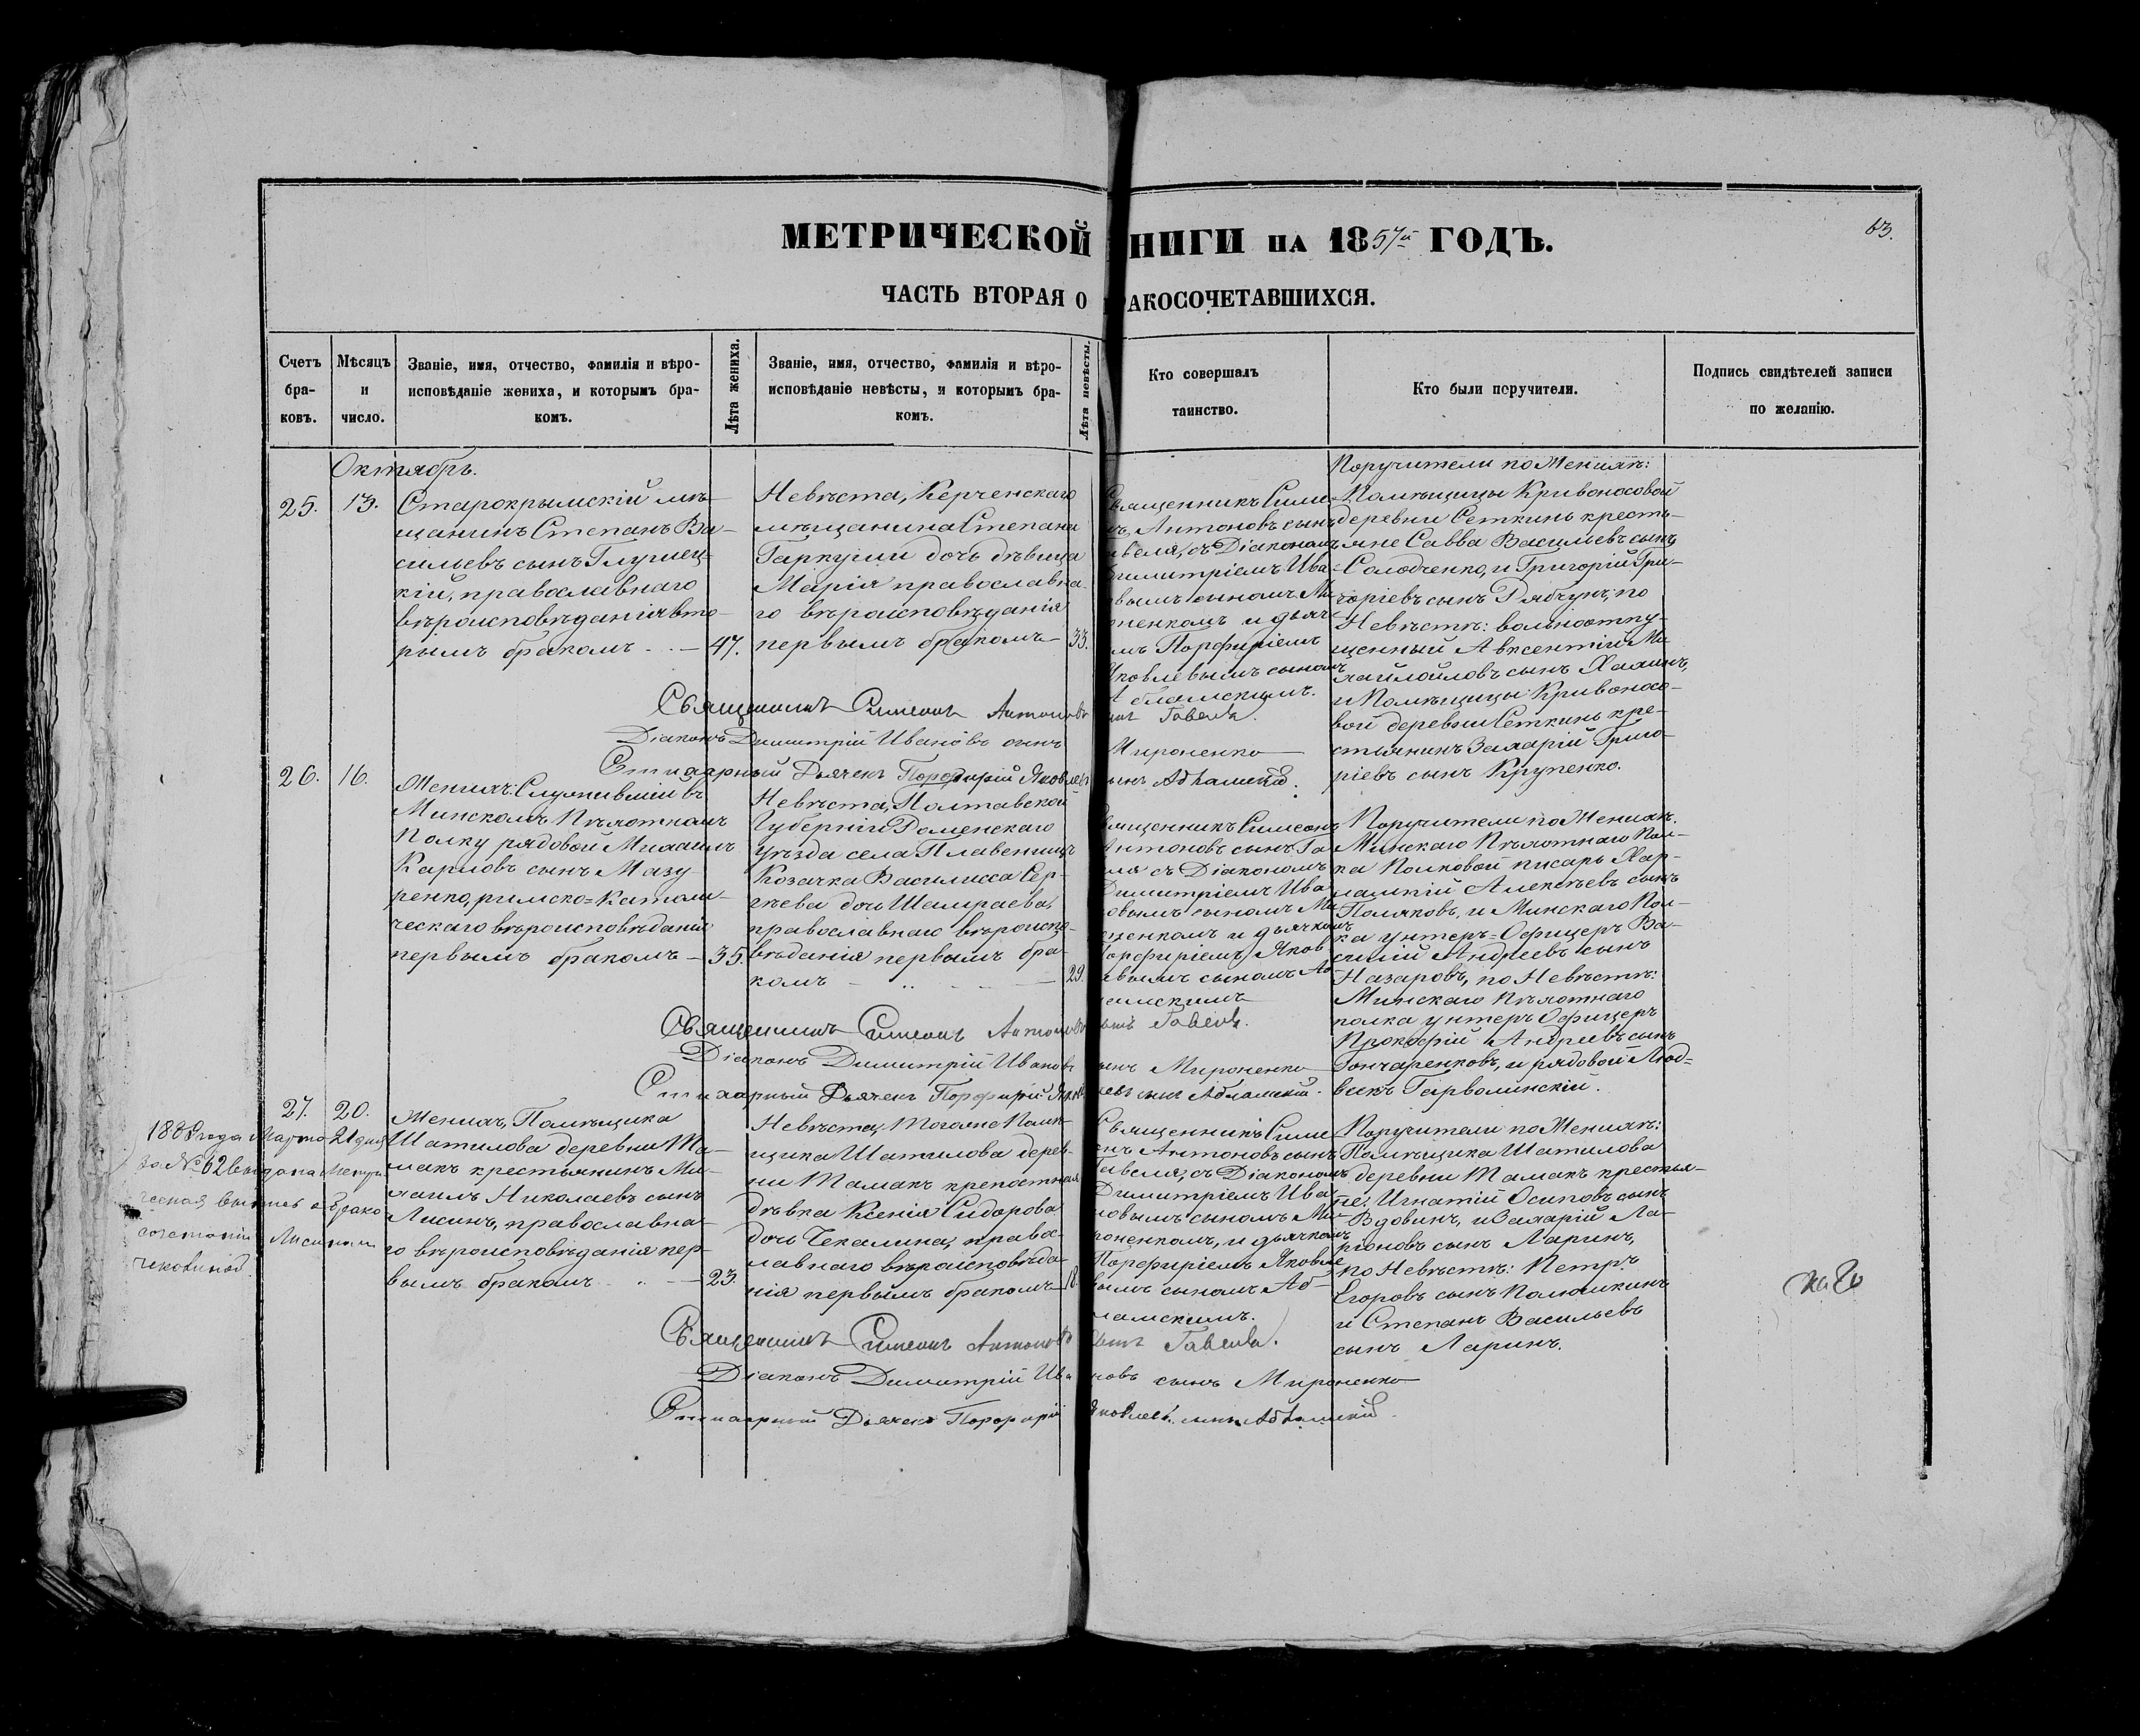 МЕТРИЧЕСКОЙ НИГИ НА 1857й ГОДЪ.
63.
ЧАСТЬ ВТОРАЯ О АКОСОЧЕТАВШИХСЯ.
Счетъ
бра-
ковъ.
Мѣсяцъ
и
число.
Званіе, имя, отчество, фамилія и вѣро-
исповѣданіе жениха, и которымъ бра-
комъ.
Лѣта жениха.
Званіе, имя, отчество, фамилія и вѣро-
исповѣданіе невѣсты, и которымъ бра-
комъ.
Лѣта невѣсты.
Кто совершалъ
таинство.
Кто были поручители.
Подпись свидѣтелей записи
по желанію.
Октябрь.
25.
13.
Старокрымскій мѣ-
щанинъ Степанъ Ва-
сильевъ сынъ Глушец-
кій, православнаго
вѣроисповѣданія вто-
рымъ бракомъ
47.
Невѣста, Керченскаго
мѣщанина Степана
дочь дѣвица
Марія православна-
го вѣроисповѣданія
первымъ бракомъ
33.
вященникъ Симе-
ъ, Антоновъ сынъ
веля, съ Діакономъ
имитріемъ Ива-
вымъ сыномъ Ми
оненкомъ и дьяч
мъ Порфиріемъ
Яковлевымъ сыномъ
бламскимъ.
Поручители по Женихѣ:
Помѣщицы Кривоносовой
деревни Сеткинъ кресть-
яне Савва Васильевъ сынъ
Солодченко, и Григорій Гри-
горіевъ сынъ Рябчунъ, по
Невѣстѣ: вольноотпу-
щенный Авксентій Ми
хайлойловъ сынъ Халинъ,
и Помѣщицы Кривоносо-
вой деревни Сеткинъ кре-
стьянинъ Захарій Григо-
ріевъ сынъ Крупенко.
Священникъ Симеонъ Антоновъ ынъ Гавеля.
Діаконъ Димитрій Ивановъ сынъ Мироненко
Стихарный Дьячекъ Порфирій Яковлевъ ынъ Абламскій.
26.
16.
Женихъ: Служившій въ
Минскомъ Пѣхотномъ
Полку рядовой Михаилъ
Карповъ сынъ Мазу
ренко, римско=Католи-
ческаго вѣроисповѣданія
первымъ бракомъ
35.
Невѣста, Полтавской
Губерніи Роменскаго
уѣзда села Плавенищъ
Козачка Василисса Сер-
гѣева дочь Шамраева,
православнаго вѣроиспо-
вѣданія первымъ бра-
комъ
29.
вященникъ Симеонъ
Антоновъ сынъ Га
ля съ Діакономъ
Димитріемъ Ива
овымъ сыномъ Ми
оненкомъ и дьячкомъ
Порфиріемъ Яков
евымъ сыномъ Аб
ламскимъ
Поручители по Женихѣ.
Минскаго Пѣхотнаго Пол-
ка Полковой писарь Хар-
лампій Алексѣевъ сынъ
Поляковъ, и Минскаго Пол-
ка унтеръ=Офицеръ Ва-
силій Андреевъ сынъ
Назаровъ, по Невѣстѣ:
Минскаго пѣхотнаго
полка унтеръ Офицеръ
Прокофій Андреевъ сынъ
Гончаренковъ, и рядовой Люд-
викъ Гарволинскій.
Священникъ Симеонъ Антоновъ ынъ Гавеля.
Діаконъ Димитрій Ивановъ ынъ Мироненко
Стихарный Дьячекъ Порфирій Яковл евъ сынъ Абламскій.
27.
20.
1888 года Марта 21 дня
за № 62 выдана Метри
ческая выпись о брако
сочетаніи Лисина
Женихъ, Помѣщика
Шатилова деревни Та-
макъ крестьянинъ Ми-
хаилъ Николаевъ сынъ
Лисинъ, православна-
го вѣроисповѣданія пер-
вымъ бракомъ
23.
Невѣста, Тогоже Помѣ-
щика Шатилова дерев-
ни Тамакъ крепостная
дѣвка Ксенія Сидорова
дочь Чекалина, правос-
лавнаго вѣроисповѣда-
нія первымъ бракомъ
18.
Священникъ Симе
онъ Антоновъ сынъ
Гавеля, съ Діакономъ
Димитріемъ Ива-
новымъ сыномъ Ми-
роненкомъ, и дьячкомъ
Порфиріемъ Яковле
вымъ сыномъ Аб-
ламскимъ.
Поручители по Женихѣ:
Помѣщика Шатилова
деревни Тамакъ крестья-
не, Игнатій Осиповъ сынъ
Вдовинъ, и Захарій Ла-
ріоновъ сынъ Ларинъ,
по Невѣстѣ: Петръ
Егоровъ сынъ Полюшкинъ
и Степанъ Васильевъ
сынъ Ларинъ.
Священникъ Симеонъ Антоновъ сынъ Гавеля.
Діаконъ Димитрій Ива новъ сынъ Мироненко
Стихарный Дьячекъ Порфирій Яковлевъ сынъ Абламскій.